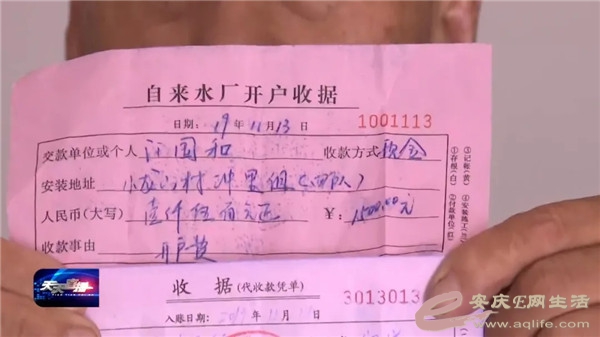 自来水厂开户收据
日期：19年11月13日 1001113
交款单位或个人 汪国和 收款方式 现金
安装地址 小龙山村冲里组（四队）
人民币（大写） 壹仟伍百元正 ¥：1500.00元
收款事由 开户费
①存根（白）
③记帐（黄）
②付款单位（红）
收 据（代收款凭单） 3013013
入账日期：2019年11月1
天天直播
安庆E网生活
www.aqlife.com